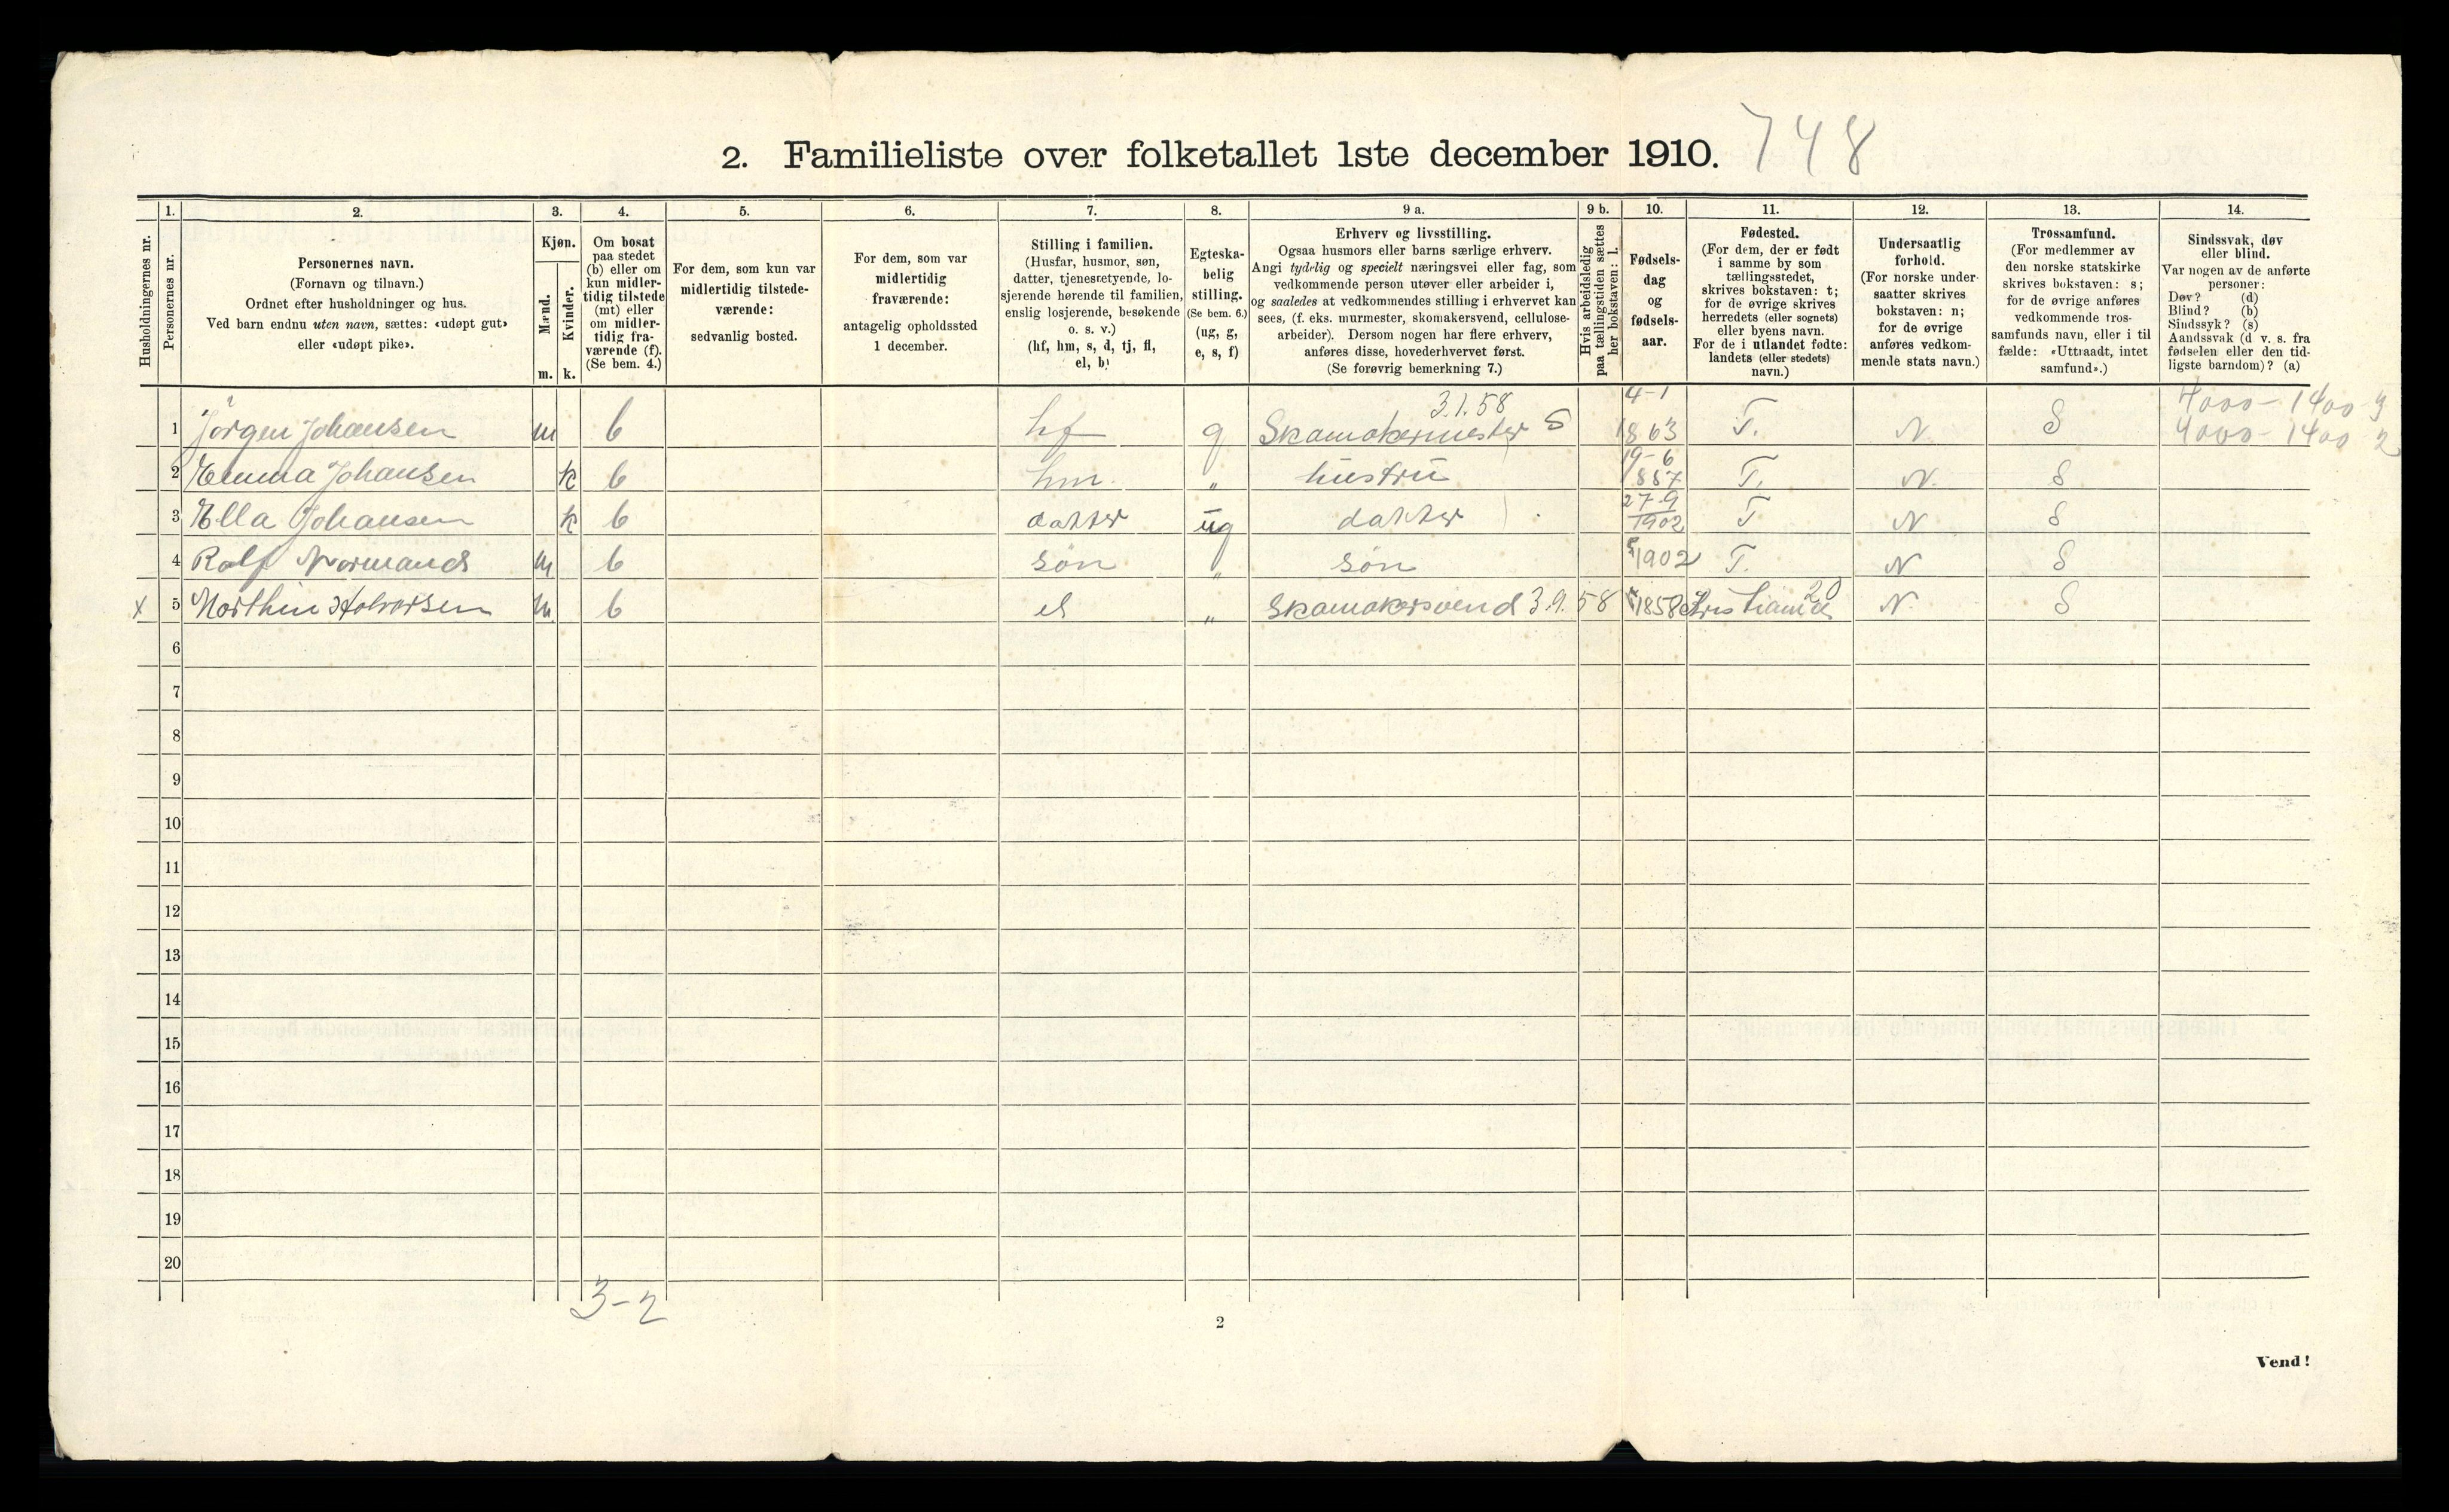 2. Familieliste over folketallet 1ste december 1910. 748
Husholdningernes nr.
1.
Personernes nr.
2.
Personernes navn.
(Fornavn og tilnavn.)
Ordnet efter husholdninger og hus.
Ved barn endnu uten navn, sættes: «udøpt gut»
eller «udøpt pike».
3.
Kjøn.
Mænd.
Kvinder.
m. k.
4.
Om bosat
paa stedet
(b) eller om
kun midler-
tidig tilstede
(mt) eller
om midler-
tidig fra-
værende (f).
(Se bem. 4.)
5.
For dem, som kun var
midlertidig tilstede-
værende:
sedvanlig bosted.
6.
For dem, som var
midlertidig
fraværende:
antagelig opholdssted
1 december.
7.
Stilling i familien.
(Husfar, husmor, søn,
datter, tjenestetyende, lo-
sjerende hørende til familien,
enslig losjerende, besøkende
o. s. v.)
(hf, hm, s, d, tj, fl,
el, b)
8.
Egteska-
belig
stilling.
(Se bem. 6.)
(ug, g,
e, s, f)
9 a.
Erhverv og livsstilling.
Ogsaa husmors eller barns særlige erhverv.
Angi tydelig og specielt næringsvei eller fag, som
vedkommende person utøver eller arbeider i,
og saaledes at vedkommendes stilling i erhvervet kan
sees, (f. eks. murmester, skomakersvend, cellulose-
arbeider). Dersom nogen har flere erhverv,
anføres disse, hovederhvervet først.
(Se forøvrig bemerkning 7.)
9 b.
Hvis arbeidsledig
paa tællingstiden sættes
her bokstaven: l.
10.
Fødsels-
dag
og
fødsels-
aar.
11.
Fødested.
(For dem, der er født
i samme by som
tællingsstedet,
skrives bokstaven: t;
for de øvrige skrives
herredets (eller sognets)
eller byens navn.
For de i utlandet fødte:
landets (eller stedets)
navn.)
12.
Undersaatlig
forhold.
(For norske under-
saatter skrives
bokstaven: n;
for de øvrige
anføres vedkom-
mende stats navn.)
13.
Trossamfund.
(For medlemmer av
den norske statskirke
skrives bokstaven: s;
for de øvrige anføres
vedkommende tros-
samfunds navn, eller i til-
fælde: «Uttraadt, intet
samfund».)
14.
Sindssvak, døv
eller blind.
Var nogen av de anførte
personer:
Døv? (d)
Blind? (b)
Sindssyk? (s)
Aandssvak (d v. s. fra
fødselen eller den tid-
ligste barndom)? (a)
3.1.58 4-1 4000-1400-3
1 Jørgen Johansen m b hf g Skomakermester S 1863 T. N S 4000-1400 2
19-6
2 Emma Johansen k b hm „ hustru 1887 T. N. S
27-9
3 Ella Johansen k b datter ug datter 1902 T N S
4 Rolf Normands m b søn „ søn 1902 T. N S
x 5 Marthin Halvorsen m b el „ Skomakersvend 3.9.58 1858 Kristiania 20 N. S
6
7
8
9
10
11
12
13
14
15
16
17
18
19
20
3-2
2
Vend!